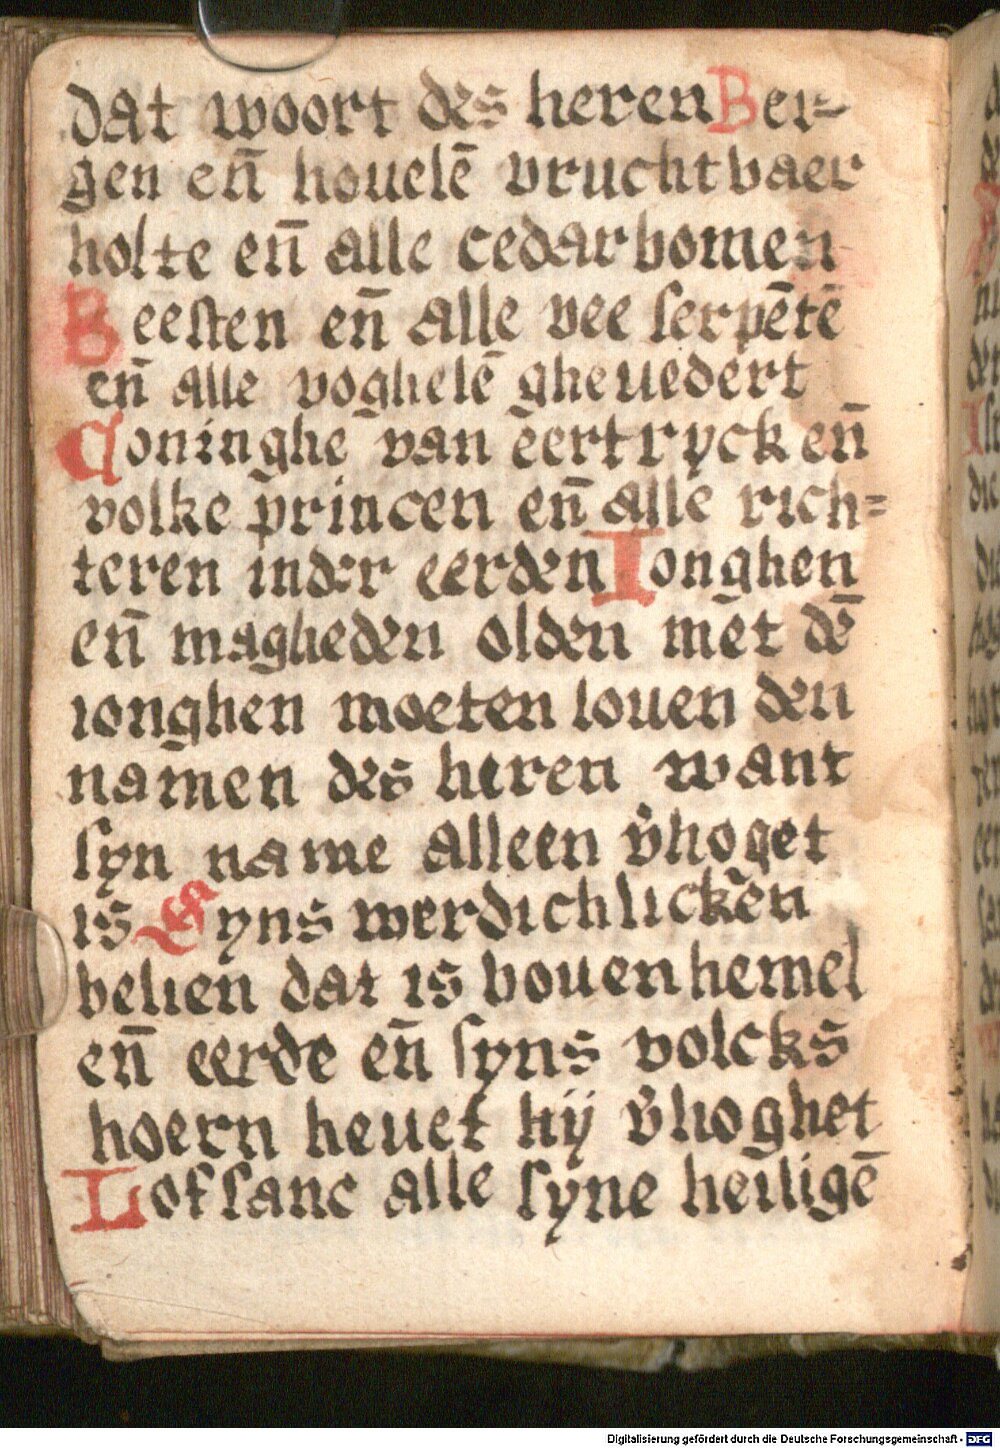 dat woort des heren Ber-
gen en̄ houelē vruchtbaer
holte en̄ alle cedarbomen
Beesten en̄ alle vee serpētē
en̄ alle voghelē gheuedert
Coninghe van eertryck en̄
volke princen en̄ alle rich=
teren inder eerden Ionghen
en̄ magheden olden met dē
ionghen moeten louen den
namen des heren want
syn name alleen v̄hoget
is Syns werdichlicken
belien dat is bouen hemel
en̄ eerde en̄ syns volcks
hoern heuet hij v̄hoghet
Lofsanc alle syne heiligē
Digitalisierung gefördert durch die Deutsche Forschungsgemeinschaft - DFG